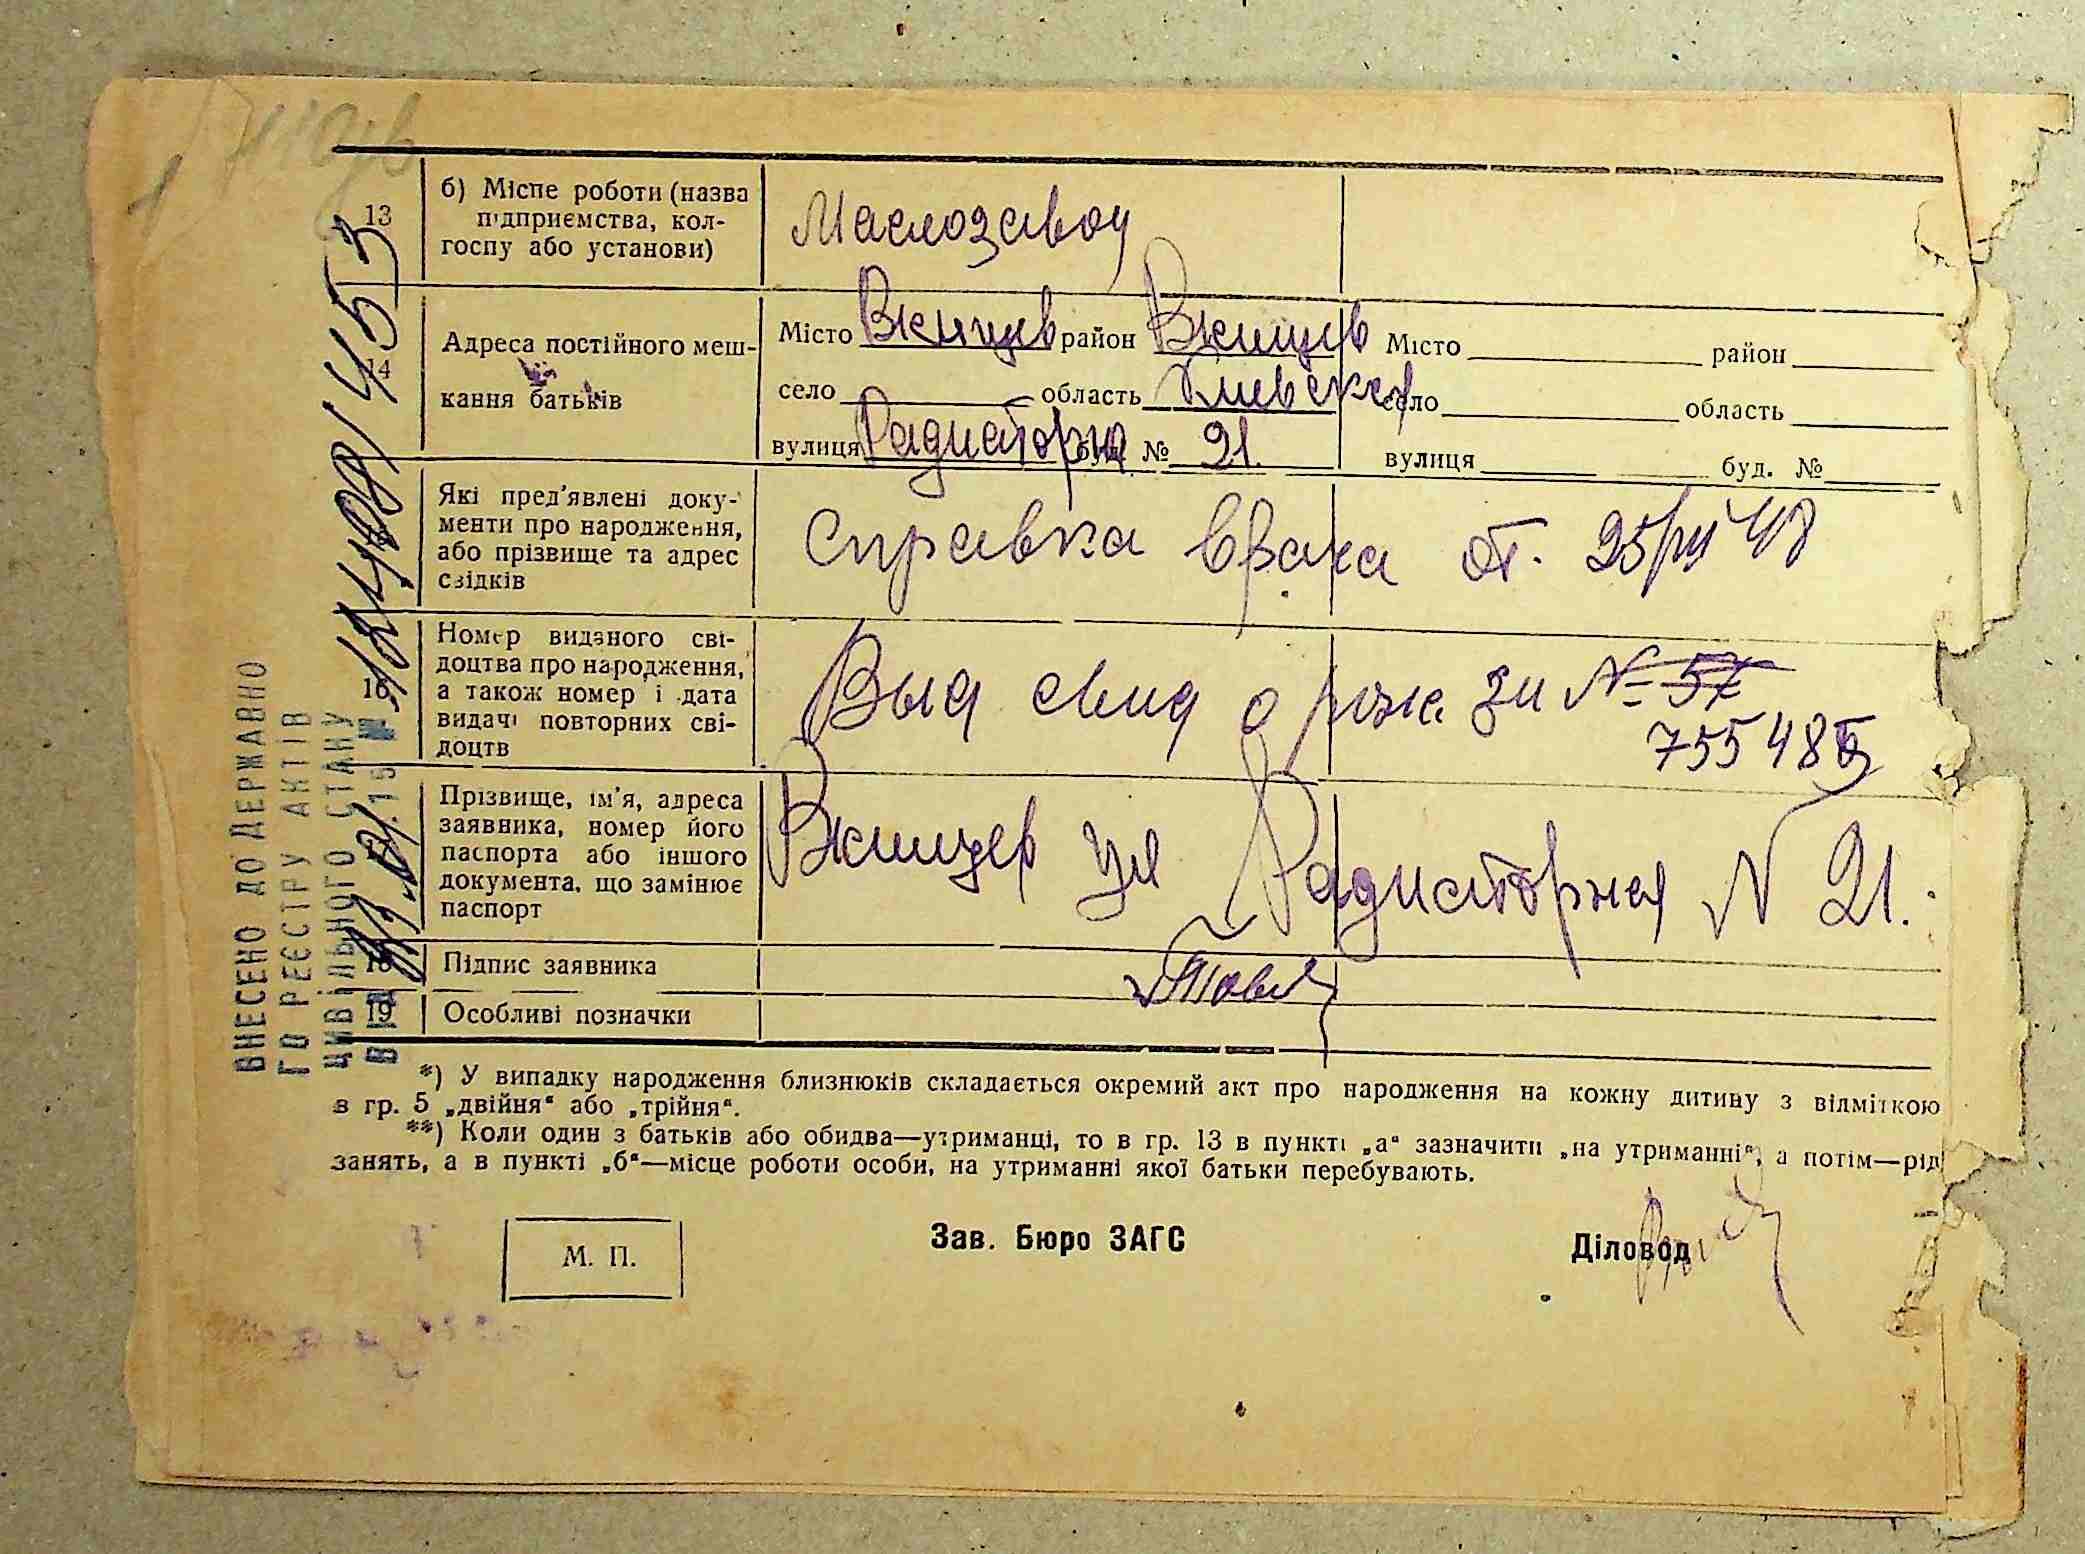 13 б) Місце роботи (назва
підприємства, кол-
госпу або установи)
Маслозавод
14 Адреса постійного меш-
кання батьків
Місто Ржищев район Ржищев
село область Киевской
вулиця Радиаторна буд. № 21.
Місто район
село область
вулиця буд. №
Які пред'явлені доку-
менти про народження,
або прізвище та адрес
свідків
Справка врача от. 25/VII 48
16 Номер виданого сві-
доцтва про народження,
а також номер і дата
видачі повторних сві-
доцтв
Выд свид о рож за № 57
755485
Прізвище, ім'я, адреса
заявника, номер його
паспорта або іншого
документа, що замінює
паспорт
Ржищев ул Радиаторная № 21.
18 Підпис заявника
19 Особливі позначки
ВНЕСЕНО ДО ДЕРЖАВНО
ГО РЕЄСТРУ АКТІВ
ЦИВІЛЬНОГО СТАНУ
*) У випадку народження близнюків складається окремий акт про народження на кожну дитину з відміткою
в гр. 5 „двійня“ або „трійня“.
**) Коли один з батьків або обидва—утриманці, то в гр. 13 в пункті „а“ зазначити „на утриманні“, а потім—рід
занять, а в пункті „б“—місце роботи особи, на утриманні якої батьки перебувають.
М. П.
Зав. Бюро ЗАГС
Діловод